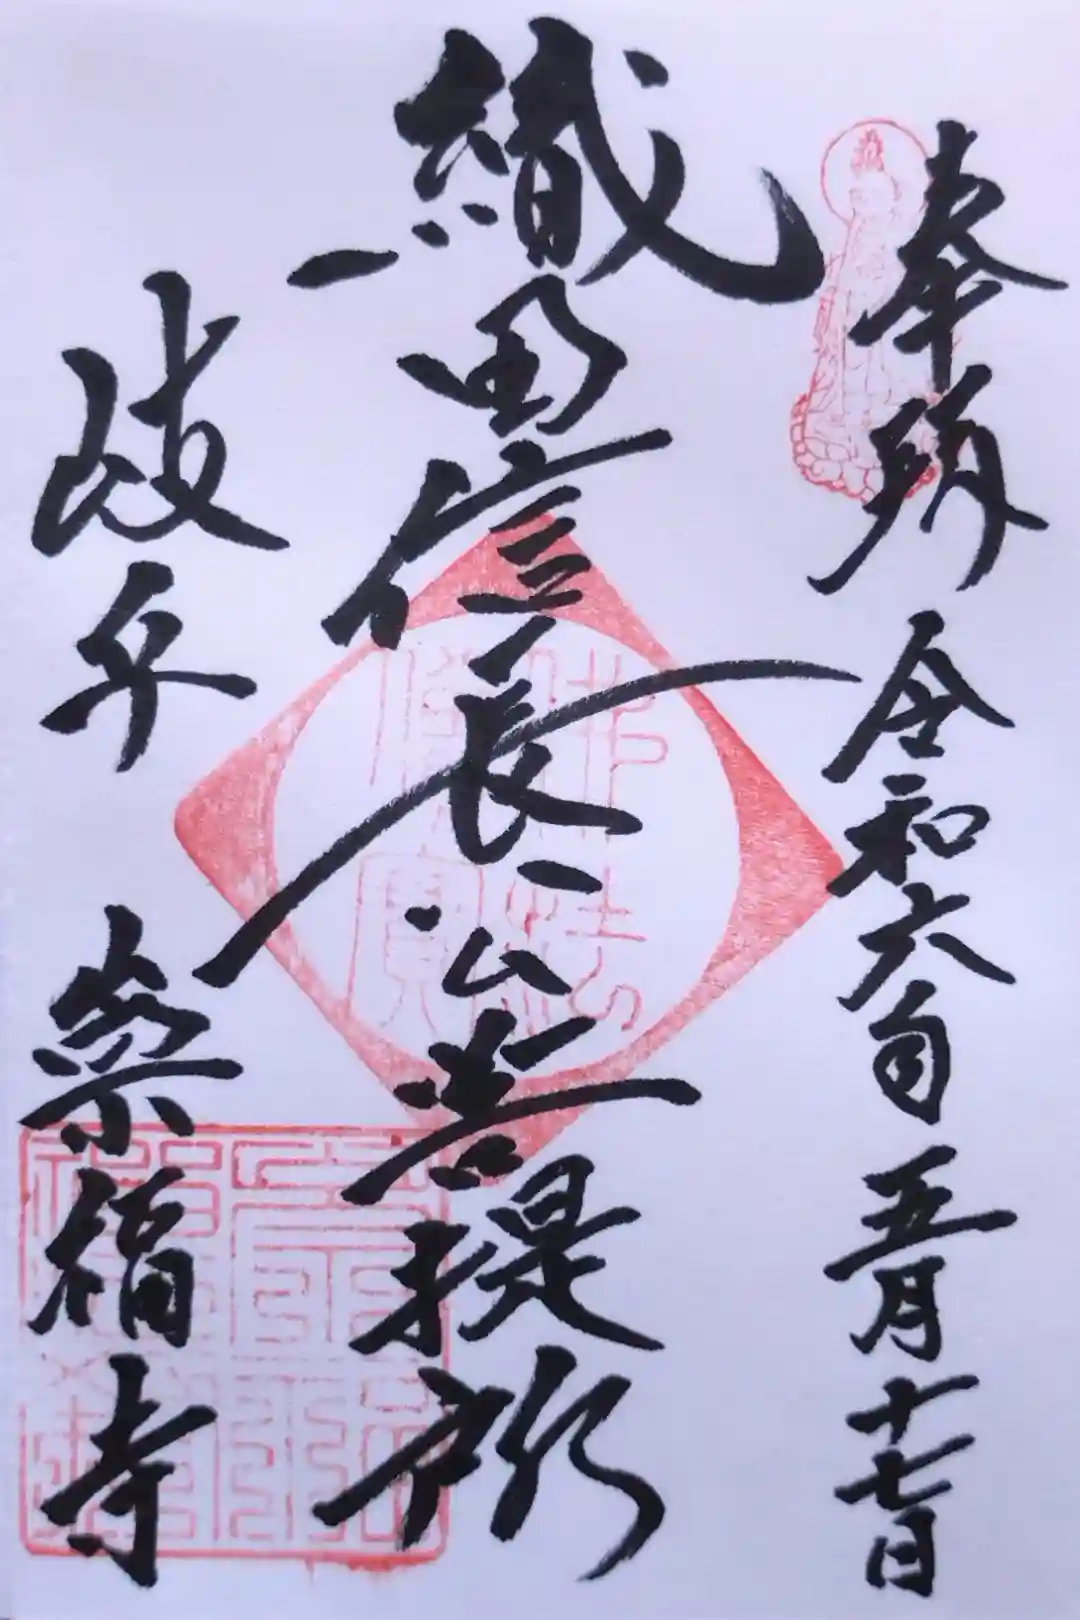 奉拝 令和六年五月十七日
織田信長公菩提所
岐阜 崇福寺
佛法
僧寶